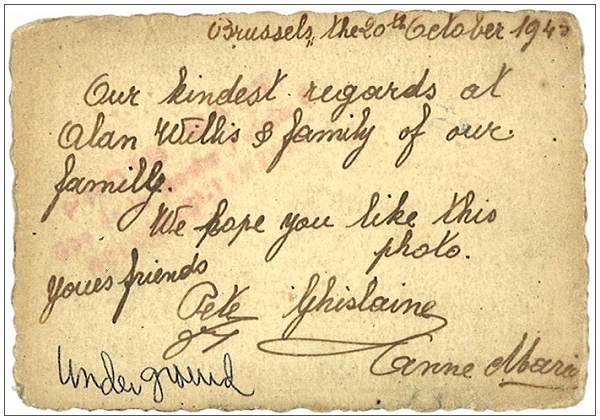 Brussels, the 20th October 194
Our kindest regards at
Alan Willis & family of our
family.
We hope you like this
photo.
Youes friends
Pete Ghislaine
Anne Marie
Underground